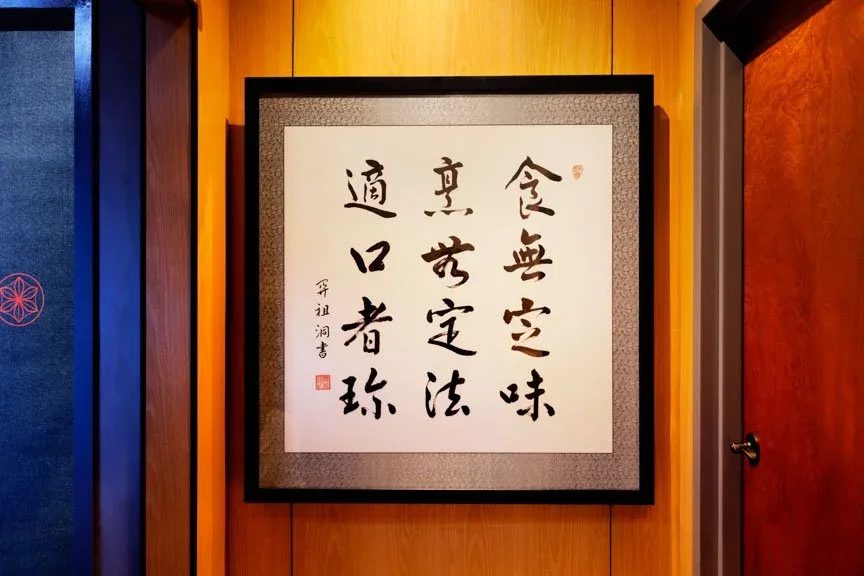 食無定味
烹無定法
適口者珍
祖洞書